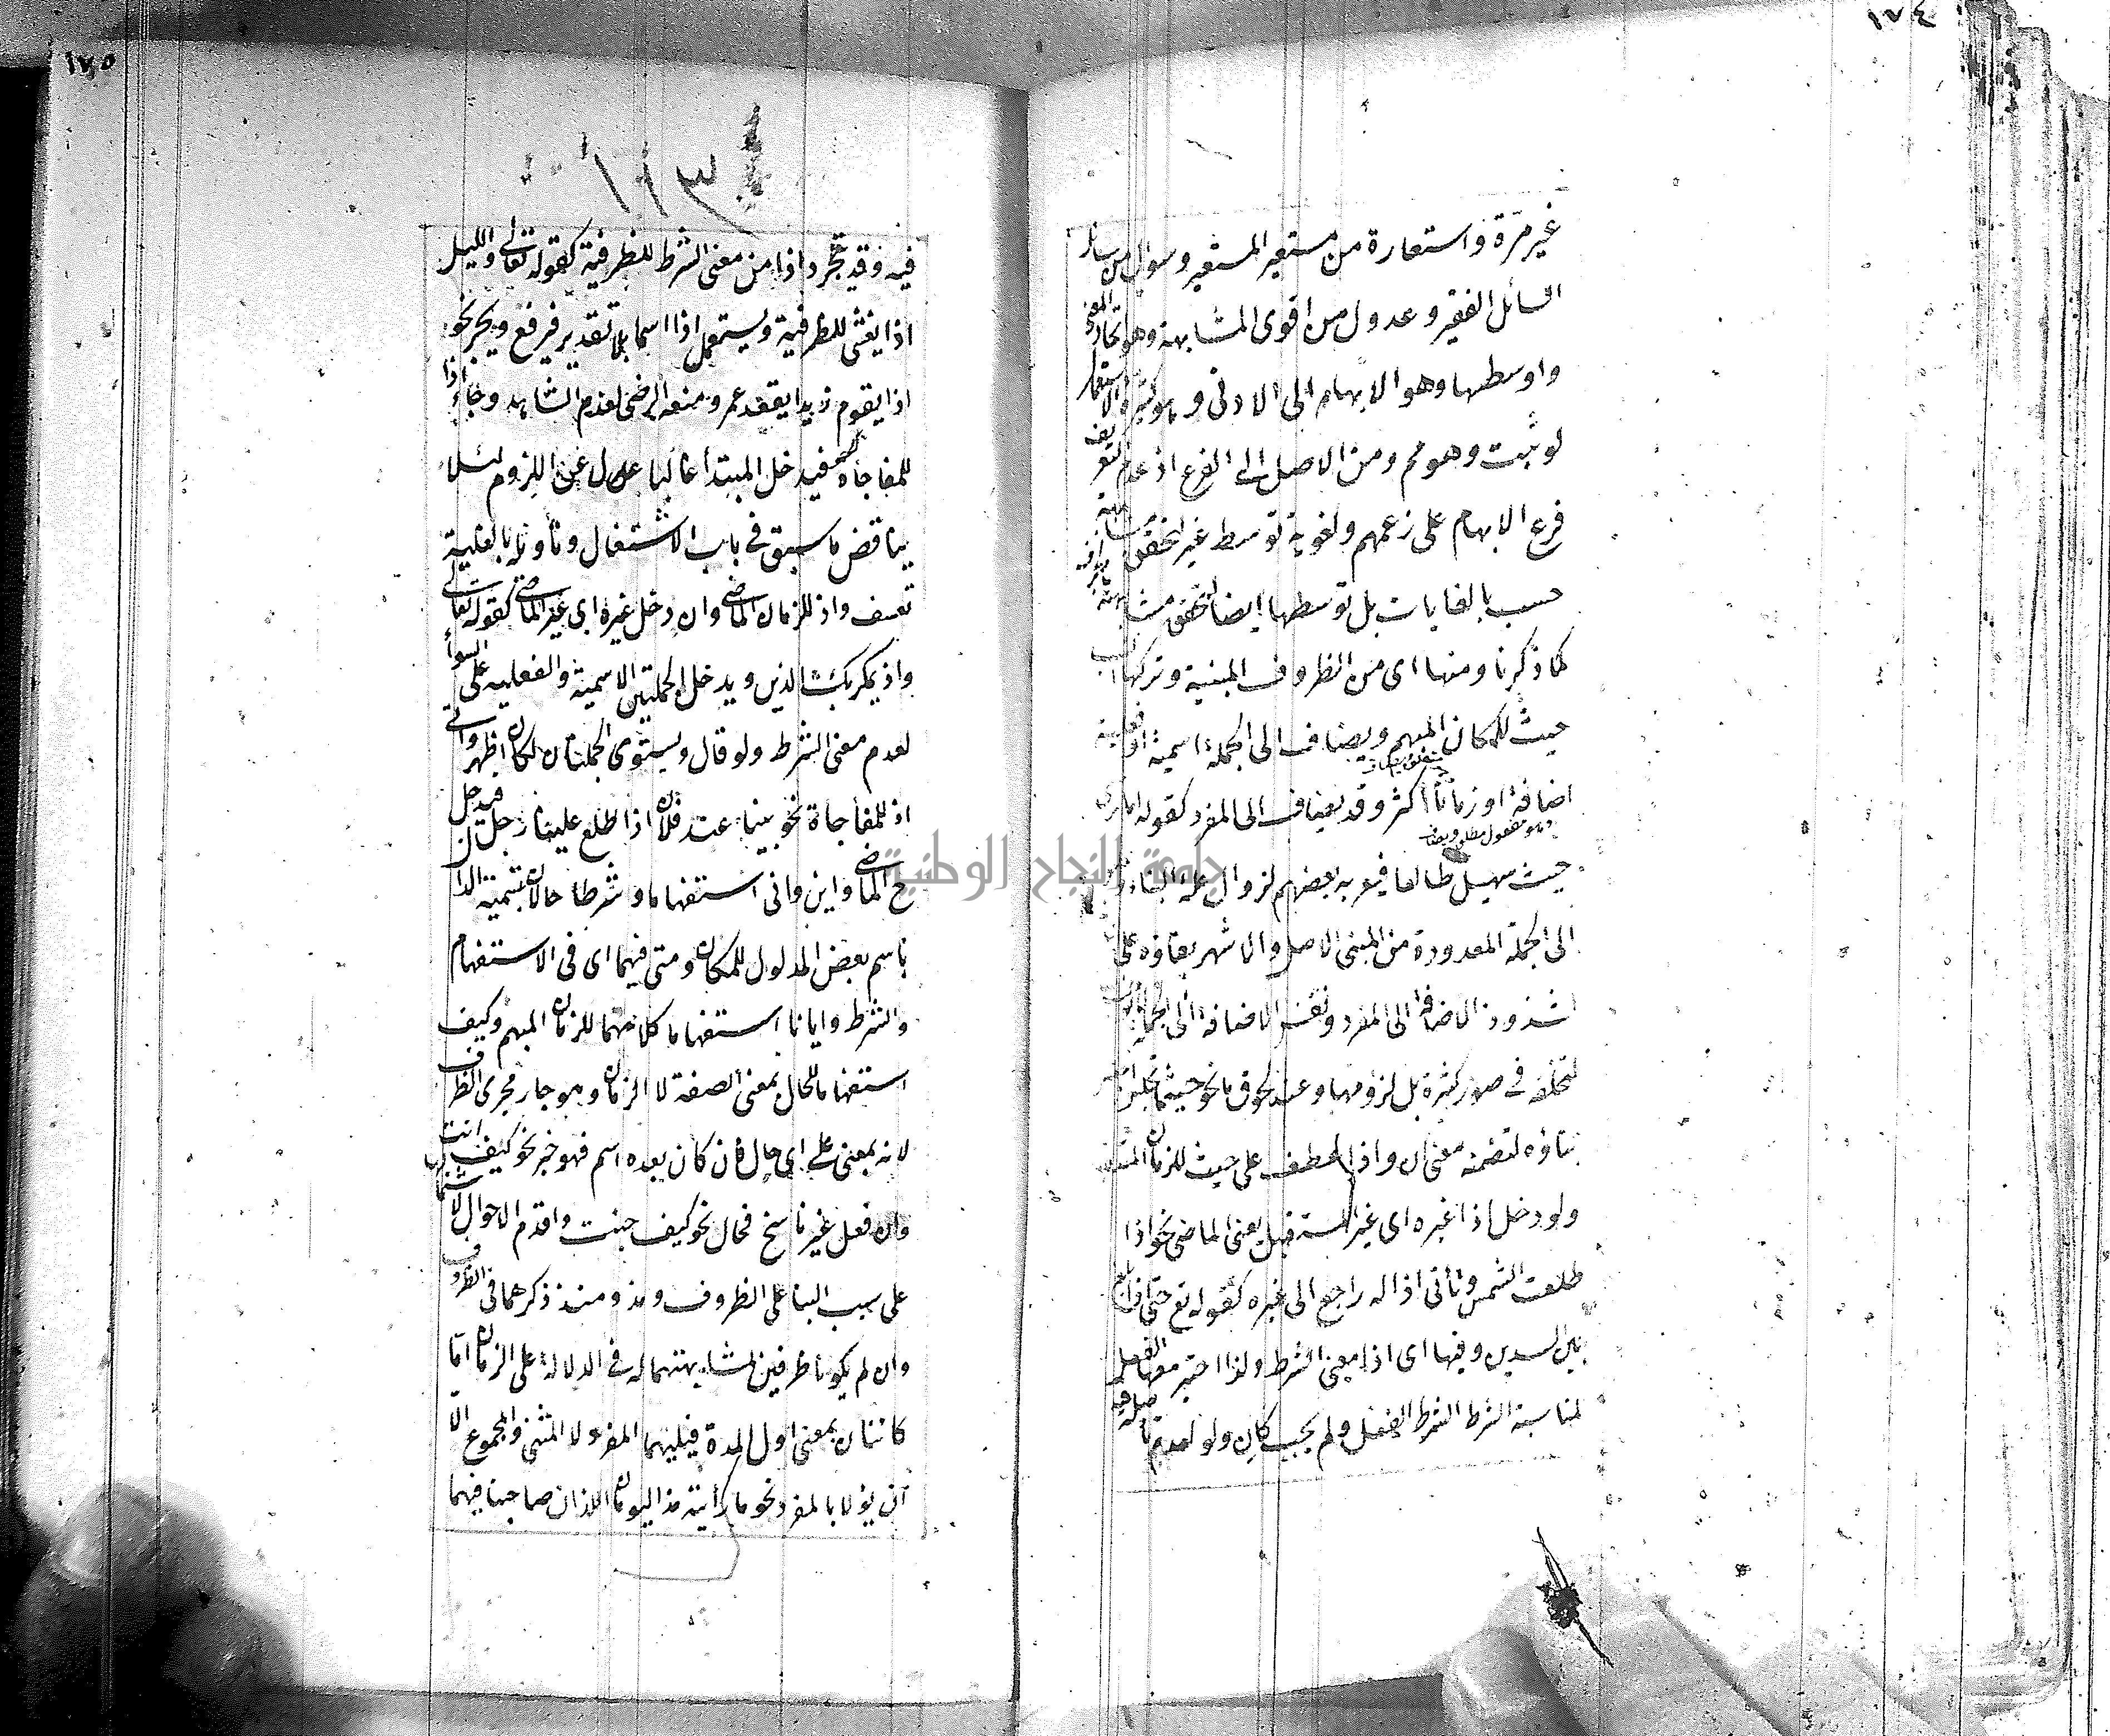 ١٧٤
غير مرة واستعارة من مستعير المستعير وسؤال من سائل
السائل الفقير وعدول من اقوى المشابهة وهو اتحاد المعنى
واوسطها وهو الابهام الى الادنى وهو كثرة الاستعمال
لو ثبت وهو مم ومن الاصل الى الفرع اذ عدم التعريف
فرع الابهام على زعمهم ولغوية توسط غير المحقق
حسب بالغايات بل توسطها ايضا لتحقق مشابهته
كما ذكرنا ومنها اى من الظروف المبنية وتركها
حيث للمكان المبهم ويضاف الى الجملة اسمية او فعلية
متعلق بيضاف
اضافة او زمانا اكثر وقد يضاف الى المفرد كقوله اما ترى
وهو مفعول مطلق ويضاف
حيث سهيل طالعا فيعربه بعضهم لزوال علة البناء
الى الجملة المعدودة من المبنى الاصل والاشهر بقاؤه على
شذوذ الاضافة الى المفرد ونفس الاضافة الى الجملة
لتخلفه فى صور كثيرة بل لزومها وعند لحوق ما نحو حيثما تجلس
بناؤه لتضمنه معنى ان واذا عطف على حيث للزمان المستقبل
ولو دخل اذا غيره اى غير المستقبل يعنى الماضى نحو اذا
طلعت الشمس وتأتى اذا له راجع الى غيره كقوله تع حتى اذا بلغ
بين السدين وفيها اى اذا معنى الشرط ولذا اختير معها الفعل
لمناسبة الشرط الشرط الفعل ولم يجب كان ولو لعدم تأصله فيه
١٧٥
فيه وقد تجرد اذا من معنى الشرط للظرفية كقوله تعالى والليل
اذا يغشى للظرفية ويستعمل اذا اسما بلا تقدير فيرفع ويجر نحو
اذا يقوم زيد اذا يقعد عمرو ومنعه الرضى لعدم الشاهد وجاء اذا
للمفاجاة فيدخل المبتدأ غالبا عدل عن اللزوم لئلا
يناقض ما سبق فى باب الاشتغال وتأويله بالغلبة
تعسف واذ للزمان الماضى وان دخل غيره اى غير الماضى كقوله تعالى
واذ يمكر بك الذين ويدخل الجملتين الاسمية والفعلية على السواء
لعدم معنى الشرط ولو قال ويستوى الجملتان لكان اظهر واتى
اذ للمفاجاة نحو بينما عند فلان اذا طلع علينا رجل فيدخل
ح الماضى واين وانى استفهاما وشرطا حالان بتسمية الدال
باسم بعض المدلول للمكان ومتى فيهما اى فى الاستفهام
والشرط وايانا استفهاما كلاهما للزمان المبهم وكيف
استفهاما للحال بمعنى الصفة لا الزمان وهو جار مجرى الظرف
لانه بمعنى على اى حال فان كان بعده اسم فهو خبر نحو كيف انت
وان فعل غير ناسخ فحال نحو كيف جئت واقدم الاحوال لاشتمال
على سبب البنا على الظروف ومذ ومنذ ذكرهما فى الظروف
وان لم يكونا ظرفين لمشابهتهما له فى الدلالة على الزمان اما
كائنان بمعنى اول المدة فيليهما المفرد لا المثنى والمجموع الا
ان يؤلا بالمفرد نحو ما رأيته مذ اليومان اللذان صاحبنا فيهما
جامعة النجاح الوطنية